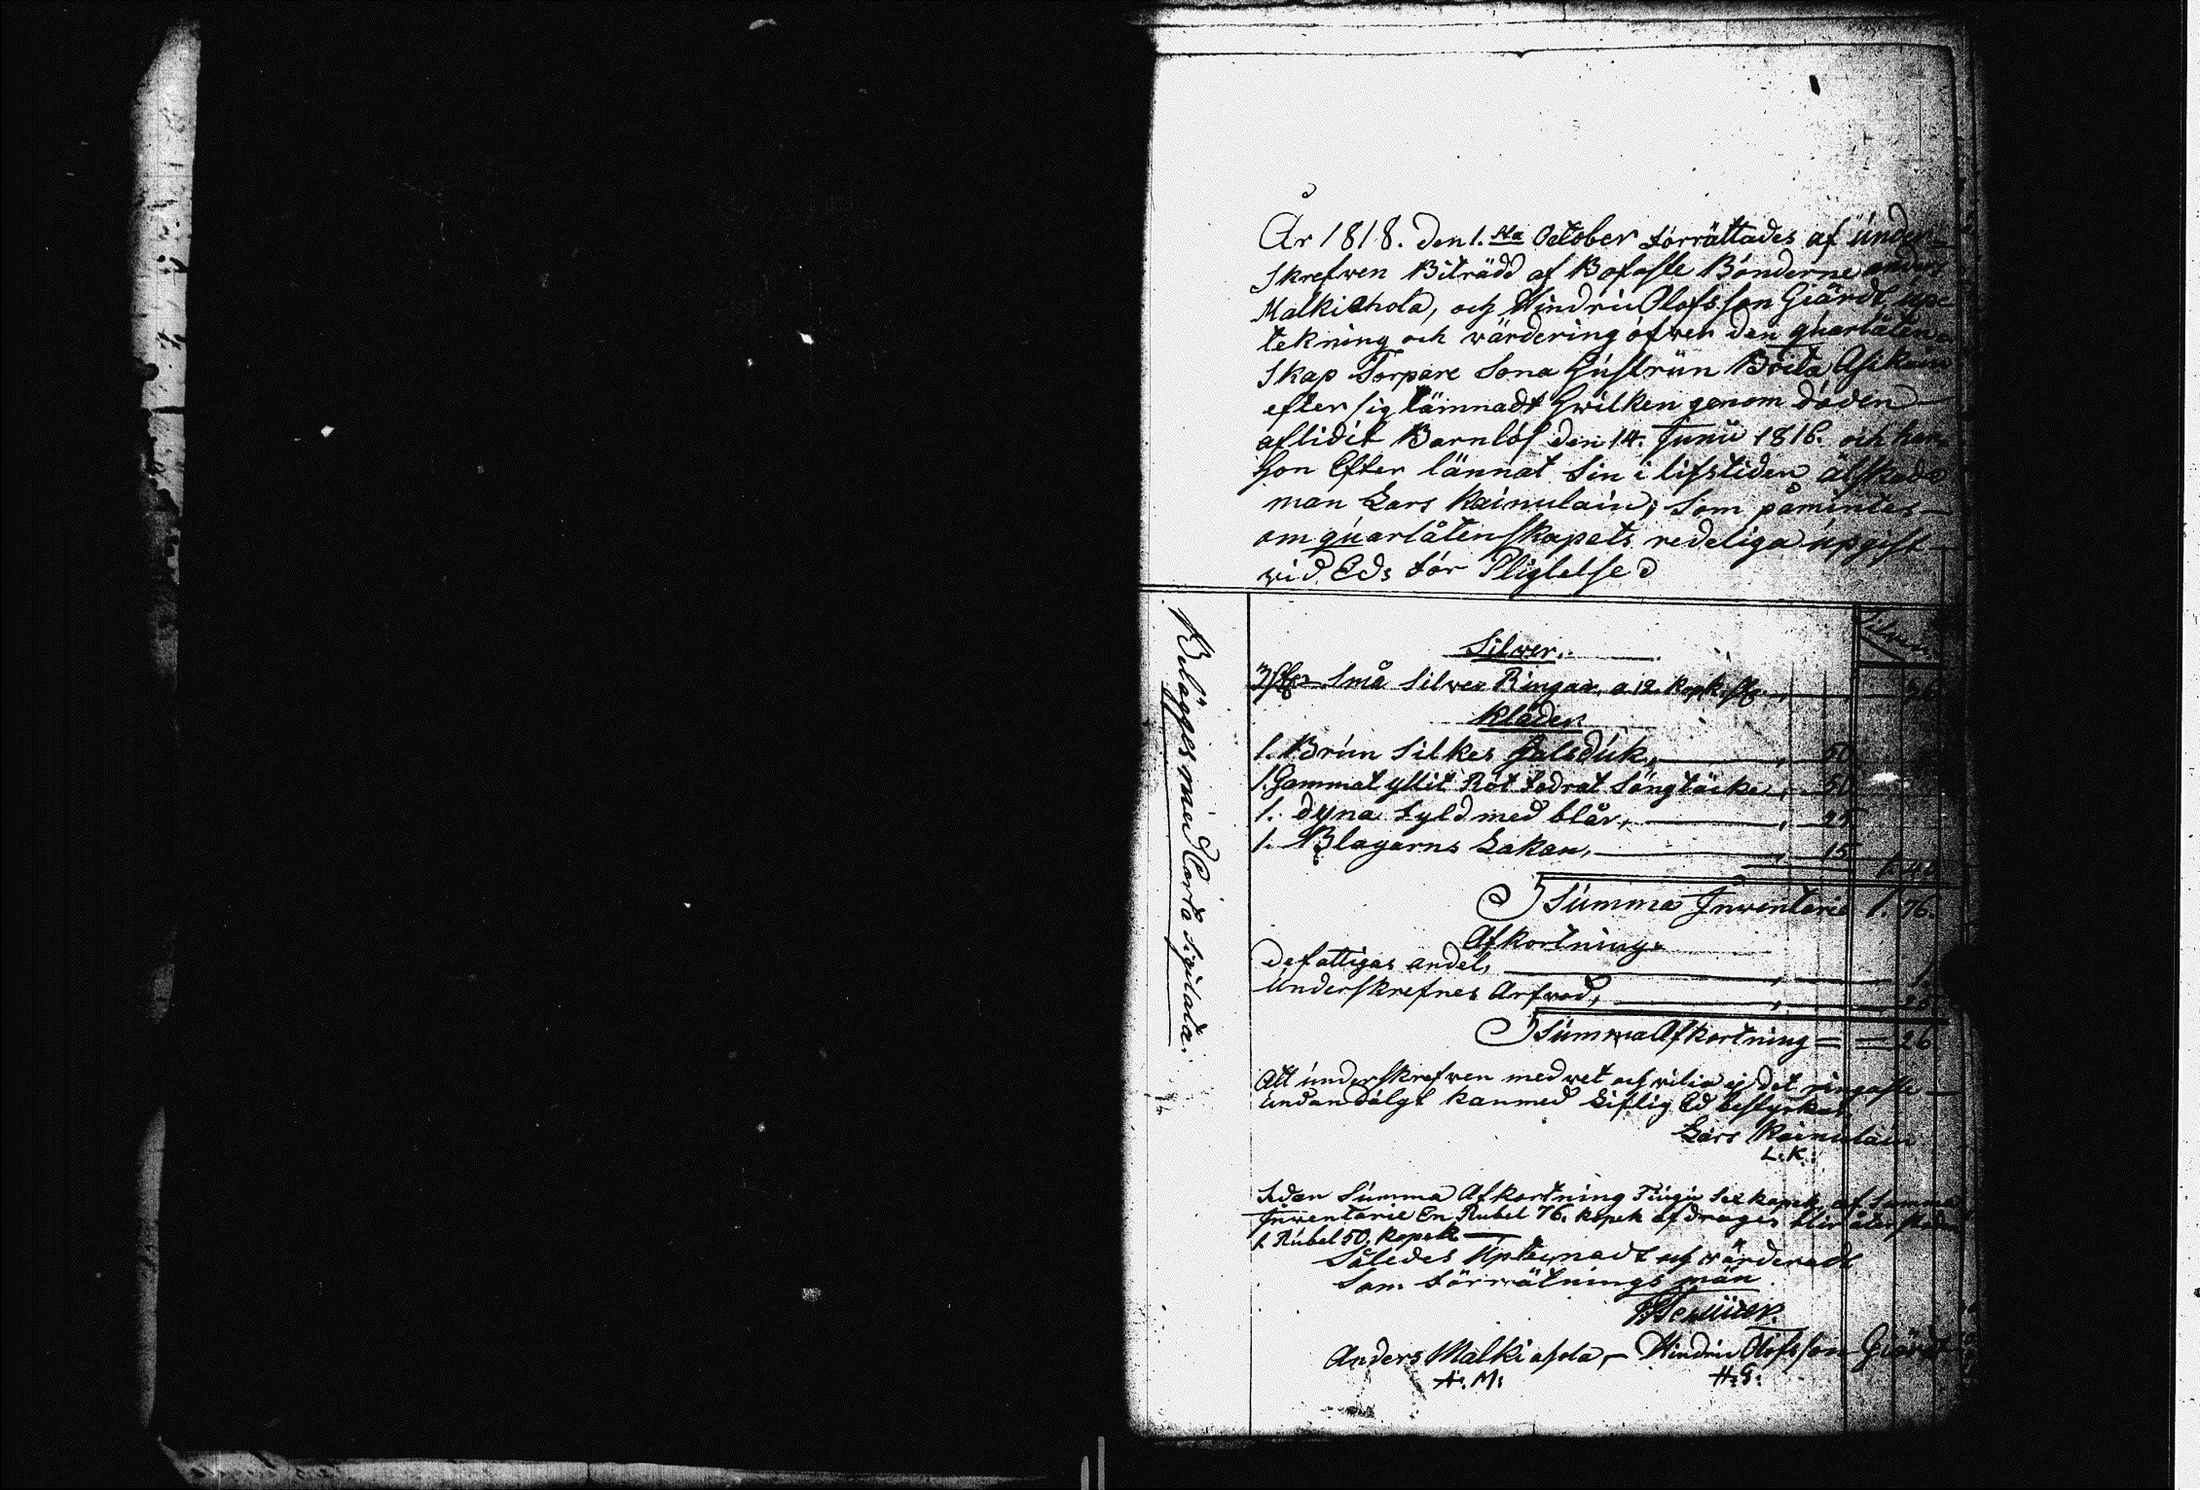 År 1818. den 1.sta October förrättades af under-
skrefwen Biträdd af Bofaste Bönderne anders
Malkiahola, och Hindric Olofsson Giärdt, upe
tekning och wärdering öfwer den quarlåten-
skap Torpare Sona Hustrun Brita Asikain
efter sig lämnadt hwilken genom döden
aflidit Barnlös den 14. Junii 1816. och har
hon Efter lännat Sin i lifstiden älskade
man Lars Kainulain, som påmintes
om quarlåtenskapets redeliga upgift
wid Eds för Pligtelse
Silwer.
3 st:er Små Silwer Ringar a 12. Kopk. st. 36
Kläder
1. Brun Silkes Halsduk, 50
1. Gammat yllit Röt fodrat Sängtäcke, 50
1. dyna fyld med blår, 25
1. Blagarns Lakan, 15 1. 40
Summa Inventarie 1. 76.
Afkortning.
De fattigas andel, 1.
Underskrefnes Arfwod, 25
Summa Afkortning 26
Att underskrefwen med wet och wilia ej det ringaste
undandölgt kan med Liflig Ed bestyrkas
Lars Kainulain
L. K.
Sedan Summa Afkortning Tiugu Sex kopek af Summa
Inventarie En Rubel 76. kopek afdrages blir återstoden
1. Rubel 50. kopek
Således Upteknadt och wärderadt
Som förrätnings män
Anders Malkiahola, Hindric Olofsson Giärdt
A. M. H. G.
Belägges med Carta Sigilata.